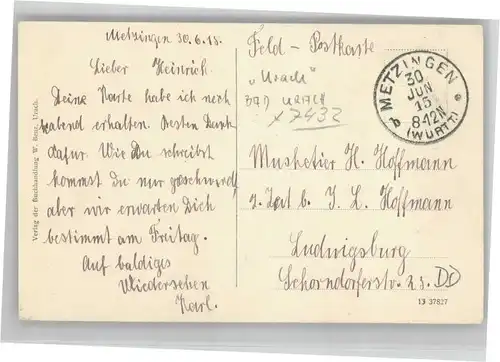 Metzingen 30.6.15.
Lieber Heinrich.
Deine Karte habe ich noch
abend erhalten. Besten Dank
dafür. Wie Du schreibst
kommst Du nur geschwind,
aber wir erwarten Dich
bestimmt am Freitag.
Auf baldiges
Wiedersehen
Karl.
Verlag der Buchhandlung W. Benz, Urach.
Feld - Postkarte
"Urach"
BAD URACH
x 7432
METZINGEN
30
JUN
15
8-12N
b (WÜRTT) *
Musketier H. Hoffmann
z. Zeit b. J. L. Hoffmann
Ludwigsburg
Schorndorferstr. 25.
13 37827